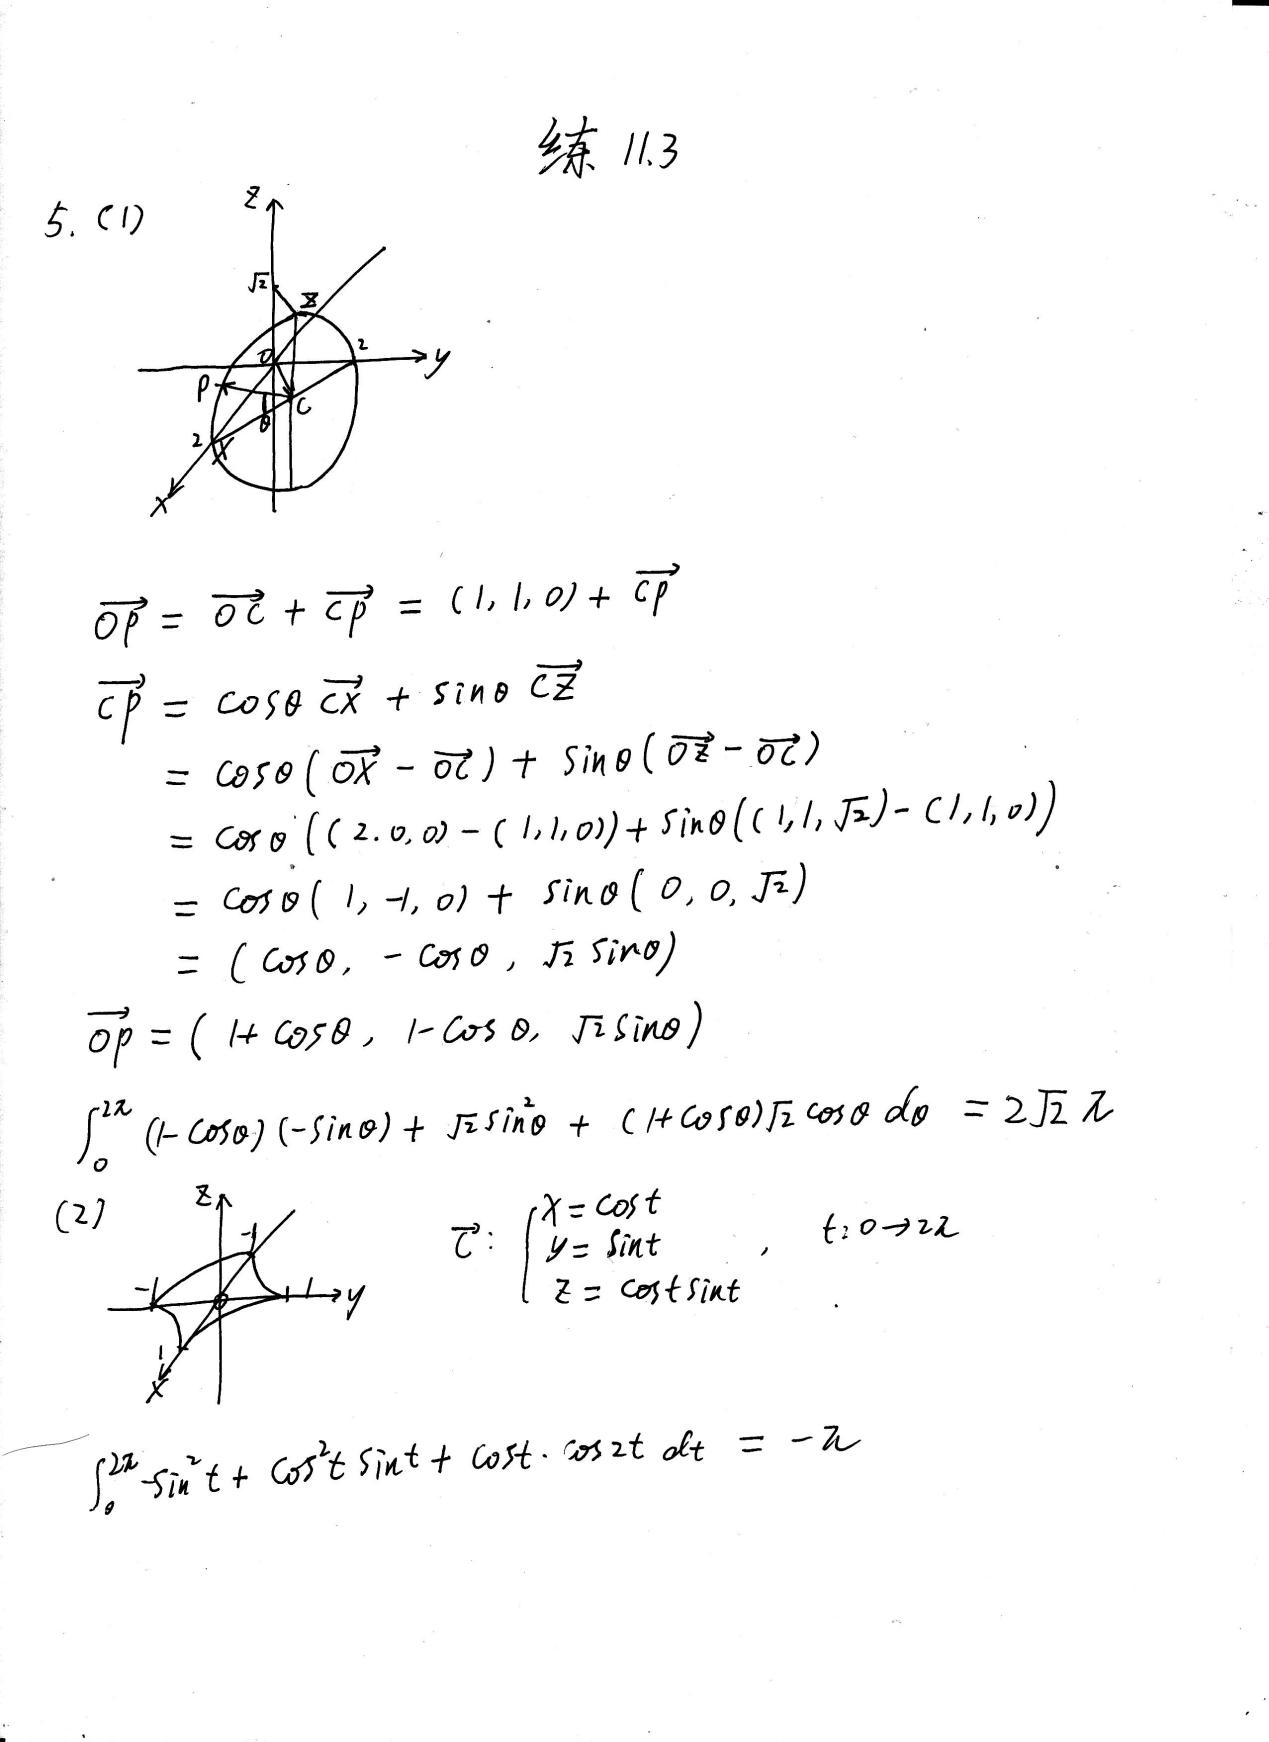 练 11.3
5. (1)
z
√2
Z
O
2
y
P
C
θ
2
X
x
→OP = →OC + →CP = (1, 1, 0) + →CP
→CP = cosθ →CX + sinθ →CZ
= cosθ(→OX - →OC) + sinθ(→OZ - →OC)
= cosθ((2.0,0) - (1,1,0)) + sinθ((1,1,√2) - (1,1,0))
= cosθ(1, -1, 0) + sinθ(0, 0, √2)
= (cosθ, -cosθ, √2 sinθ)
→OP = (1+cosθ, 1-cosθ, √2 sinθ)
∫₀^2π (1-cosθ)(-sinθ) + √2 sin²θ + (1+cosθ)√2 cosθ dθ = 2√2 π
(2)
z
-1
-1
O
1
y
1
x
→C: { x = cost
y = sint , t: 0→2π
z = costsint
∫₀^2π -sin²t + cos²t sint + cost · cos2t dt = -π